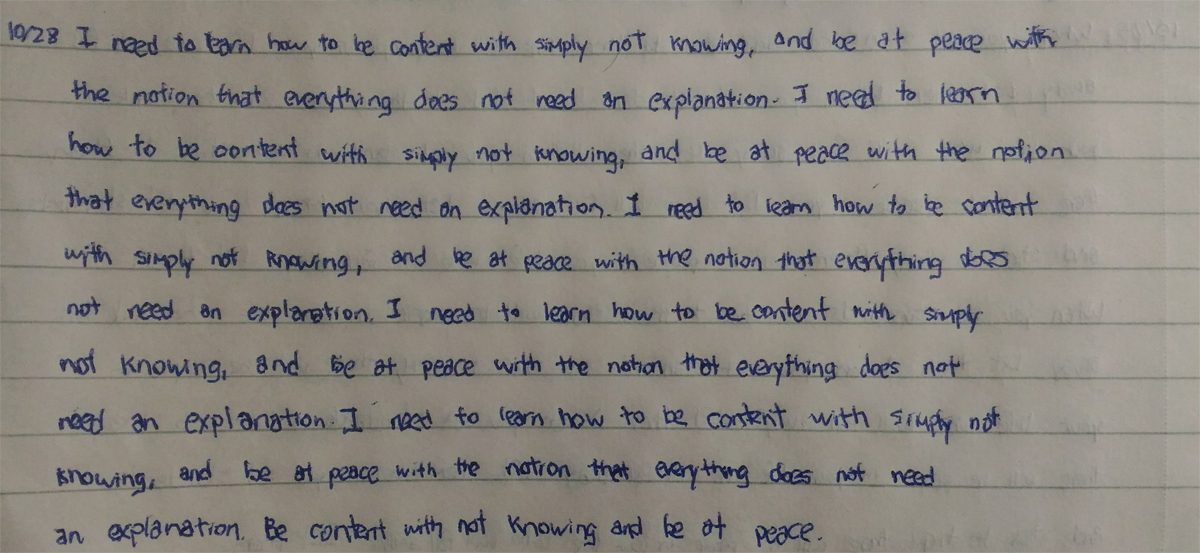 10/28 I need to learn how to be content with simply not knowing, and be at peace with
the notion that everything does not need an explanation. I need to learn
how to be content with simply not knowing, and be at peace with the notion
that everything does not need an explanation. I need to learn how to be content
with simply not knowing, and be at peace with the notion that everything does
not need an explanation. I need to learn how to be content with simply
not knowing, and be at peace with the notion that everything does not
need an explanation. I need to learn how to be content with simply not
knowing, and be at peace with the notion that everything does not need
an explanation. Be content with not knowing and be at peace.